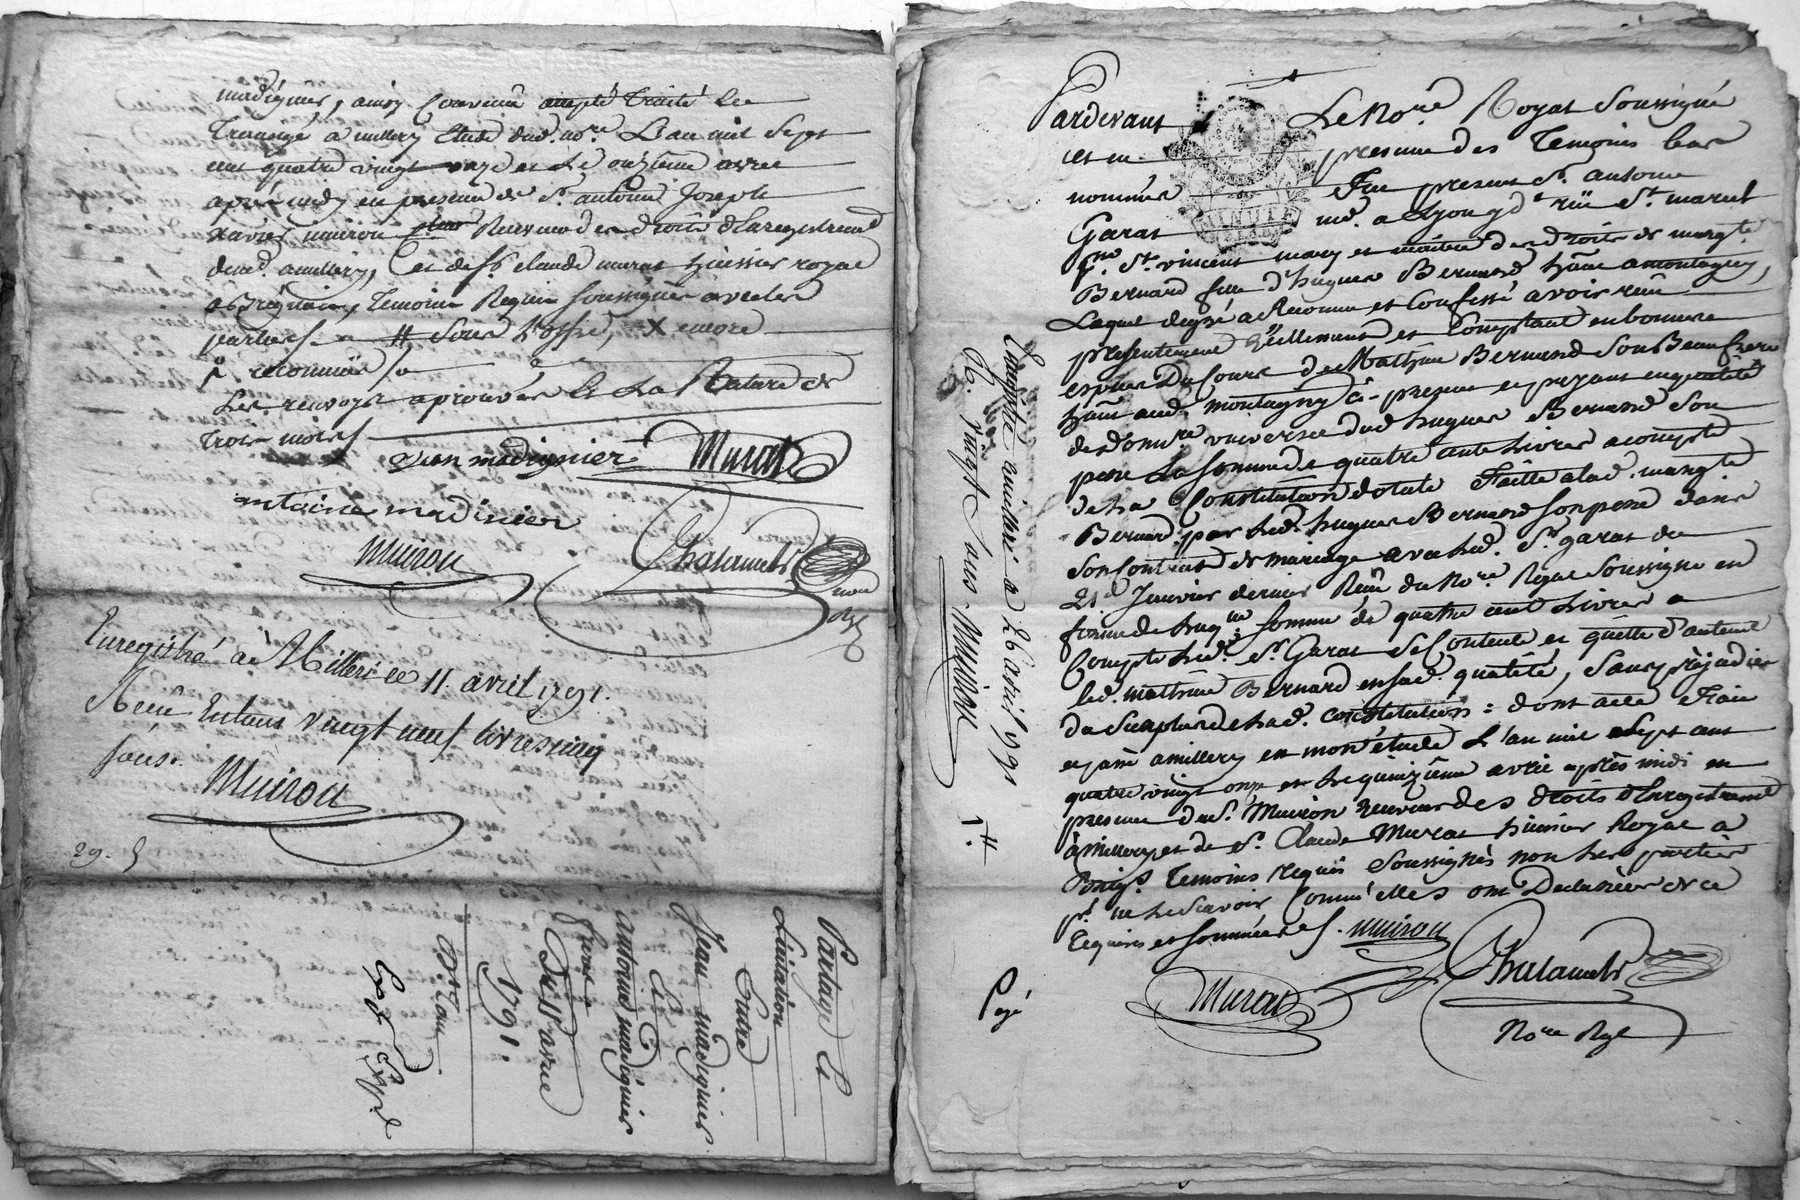 madignier, ainsy convenu accepté traité
transigé a millery Etude dud. no.re L'an mil Sept
cent quatre vingt onze et Le onzieme avril
après midy en presence de S.r antoine Joseph
Xavier muiron Receveur des droits d'Enregistrement
aud. a millery, et de S.r claude murat huissier royal
a Brignais, Temoins Requis soussignés avec les
parties
reconnüe
Les renvoys aprouvés et La Rature de
trois mots
jean madignier Murat
antoine madinier
Muirou Chalamel
Enregistré à Milleri le 11 avril 1791.
Reçu vingt neuf livres cinq
sous.
Muirou
29. 5
Partage Et
Entre
Jean madignier
Et
antoine madignier
freres
Du 11 avril
1791.
Pardevant Le No.re Royal Soussigné
et en presence des Temoins bas
nommés Fut present S.r antoine
Garat md. a Lyon rüe St. marcel
St. vincent mary et maitre des droits de margte
Bernard fille d'hugues Bernard a montagny,
Lequel degré a Reconnu et Confessé avoir reçu
presentement réellement et Comptant en bonnes
especes Du Cours de Mathieu Bernard Son Beau frere
aud. montagny ci-present et payant en qualité
de donn.re universel dud hugues Bernard Son
pere La somme de quatre cents Livres a compte
de La Constitution dotale faitte a lad. margte
Bernard par led. hugues Bernard son pere dans
son Contrat de mariage avec led. S.r garat du
Janvier dernier Reçu du No.re Royal Soussigné en
forme de Laq.lle somme de quatre cent Livres a
Compte Led. S.r Garat Se Contente et quitte d'autant
led. mathieu Bernard en sad. qualité, Sans préjudice
du Surplus de Lad. constitution: dont acte Fait
et passé a millery en mon étude L'an mil Sept cent
quatre vingt onze et Le quinzième avril après midi en
presence du S. Muiron receveur des droits d'Enregistrement
à millery et de S.r Claude Murat huissier Royal à
Brig.s Temoins requis Soussignés non Les parties
p.r ne le Scavoir Comm'elles ont Declarées de ce
Requises et sommées. Muirou
Murat Chalamel
No.re Ryl
Payé
Enregistré à milleri le 26 avril 1791
R. vingt sous. Muirou